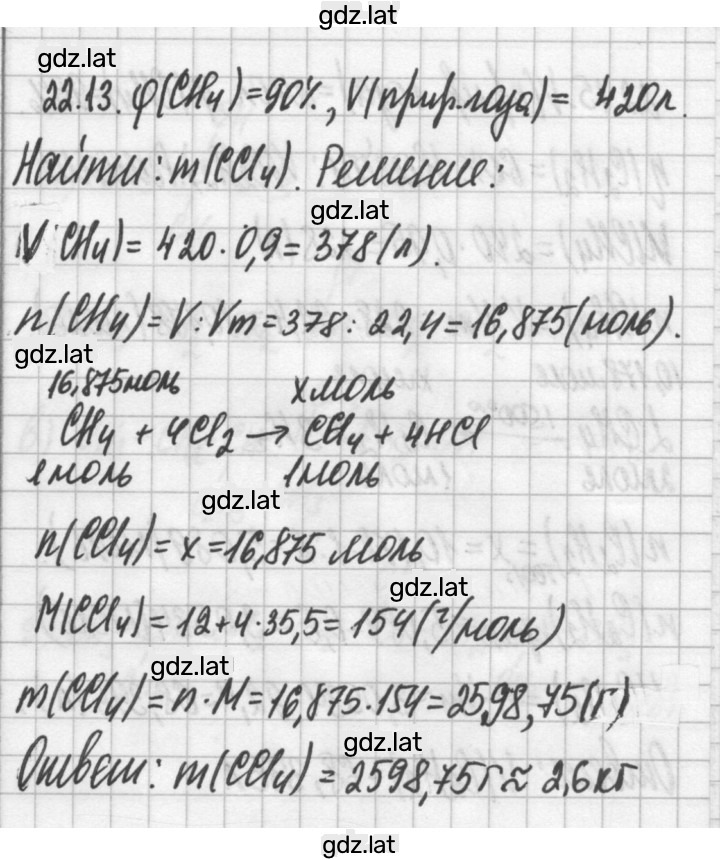 gdz.lat
gdz.lat
22.13. φ(CH₄)=90%, V(прир.газа)= 420л.
Найти: m(CCl₄). Решение:
gdz.lat
V(CH₄)= 420·0,9=378(л).
n(CH₄)=V:Vm=378:22,4=16,875(моль).
gdz.lat
16,875моль x моль
CH₄ + 4Cl₂ → CCl₄ + 4HCl
1моль 1моль
gdz.lat
n(CCl₄)= x =16,875 моль
gdz.lat
M(CCl₄)=12+4·35,5=154(г/моль)
gdz.lat
m(CCl₄)=n·M=16,875·154=2598,75(г)
gdz.lat
Ответ: m(CCl₄)=2598,75г≈2,6кг
gdz.lat